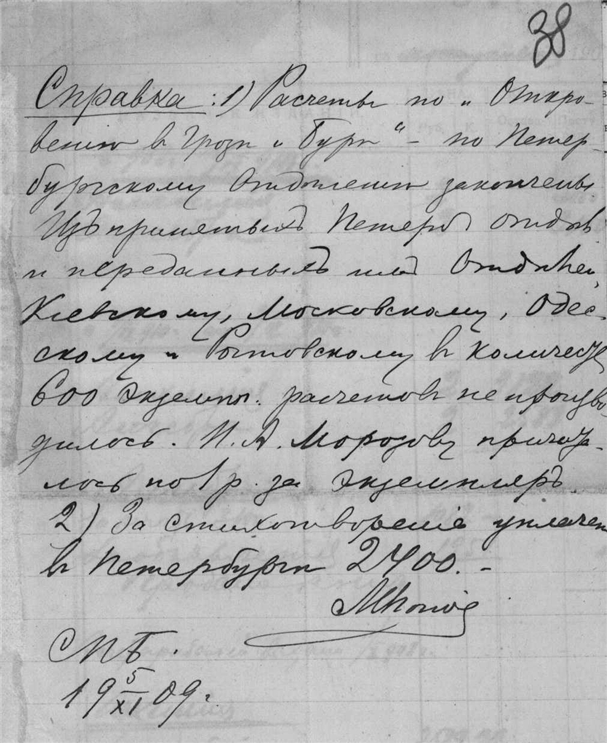 38
Справка: 1) Расчеты по „Откро-
вению в Грозѣ и Бурѣ“ – по Петер-
бургскому Отдѣленію закончены
Изъ принятыхъ Петерб отдѣл
и переданныхъ имъ Отдѣлен.
Кіевскому, Московскому, Одес-
скому и Ростовскому в количест
600 экземпл. расчетовъ не произво-
дилось. Н. А. Морозову причита-
лось по 1 р. за экземпляръ.
2) За стихотвореніе уплачен
в Петербургѣ 2400. –
СПБ.
19 5/XI 09.